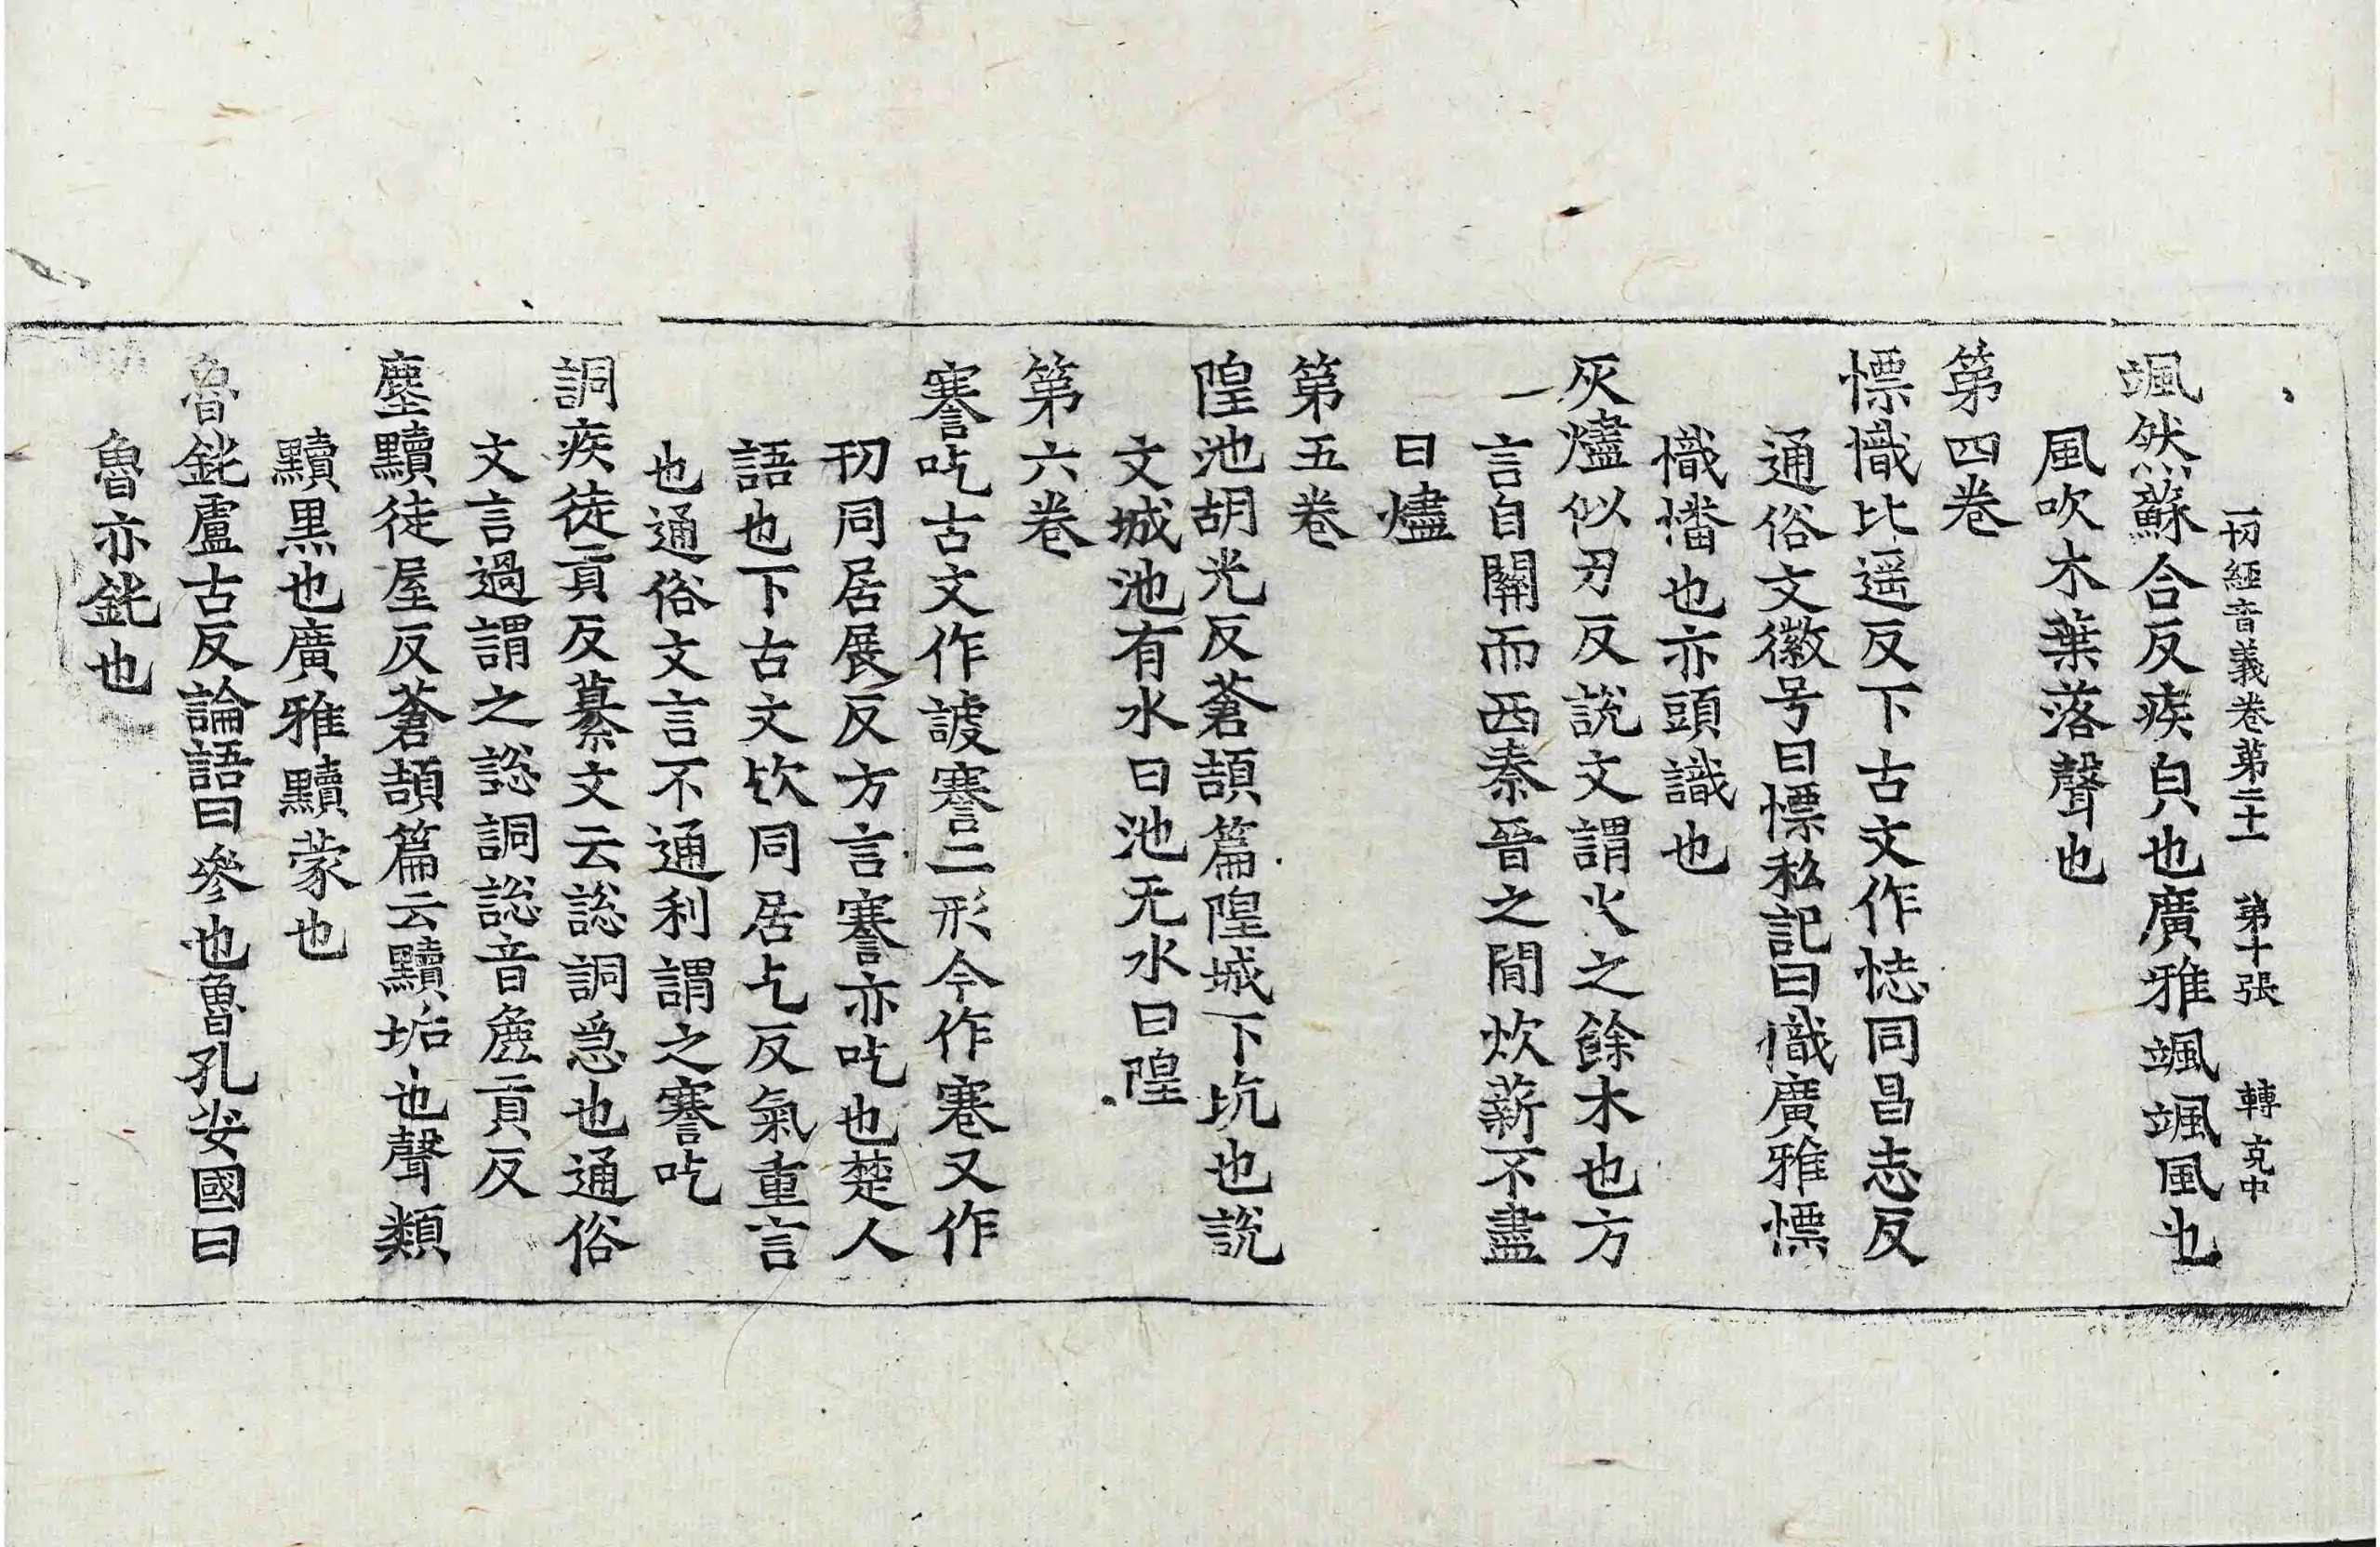 一切経音義卷第二十一 第十張 轉 克中
颯然蘇合反疾㒵也廣雅颯颯風也
風吹木葉落聲也
第四卷
慓幟比遥反下古文作㤅同昌志反
通俗文徽号曰慓私記曰幟廣雅慓
幟憣也亦頭識也
灰燼似刃反說文謂火之餘木也方
言自關而西秦晉之間炊薪不盡
曰燼
第五卷
隍池胡光反蒼頡篇隍城下坑也說
文城池也有水曰池无水曰隍
第六卷
謇吃古文作䛳謇二形今作蹇又作
㓞同居展反方言謇亦吃也楚人
語也下古文㰟同居乞反氣重言
也通俗文言不通利謂之謇吃
詷疾徒貢反纂文云謥詷急也通俗
文言過謂之謥詷謥音麁貢反
塵黷徒屋反蒼頡篇云黷垢也聲類
黷黒也廣雅黷蒙也
魯鈍盧古反論語曰參也魯孔安國曰
魯亦鈍也